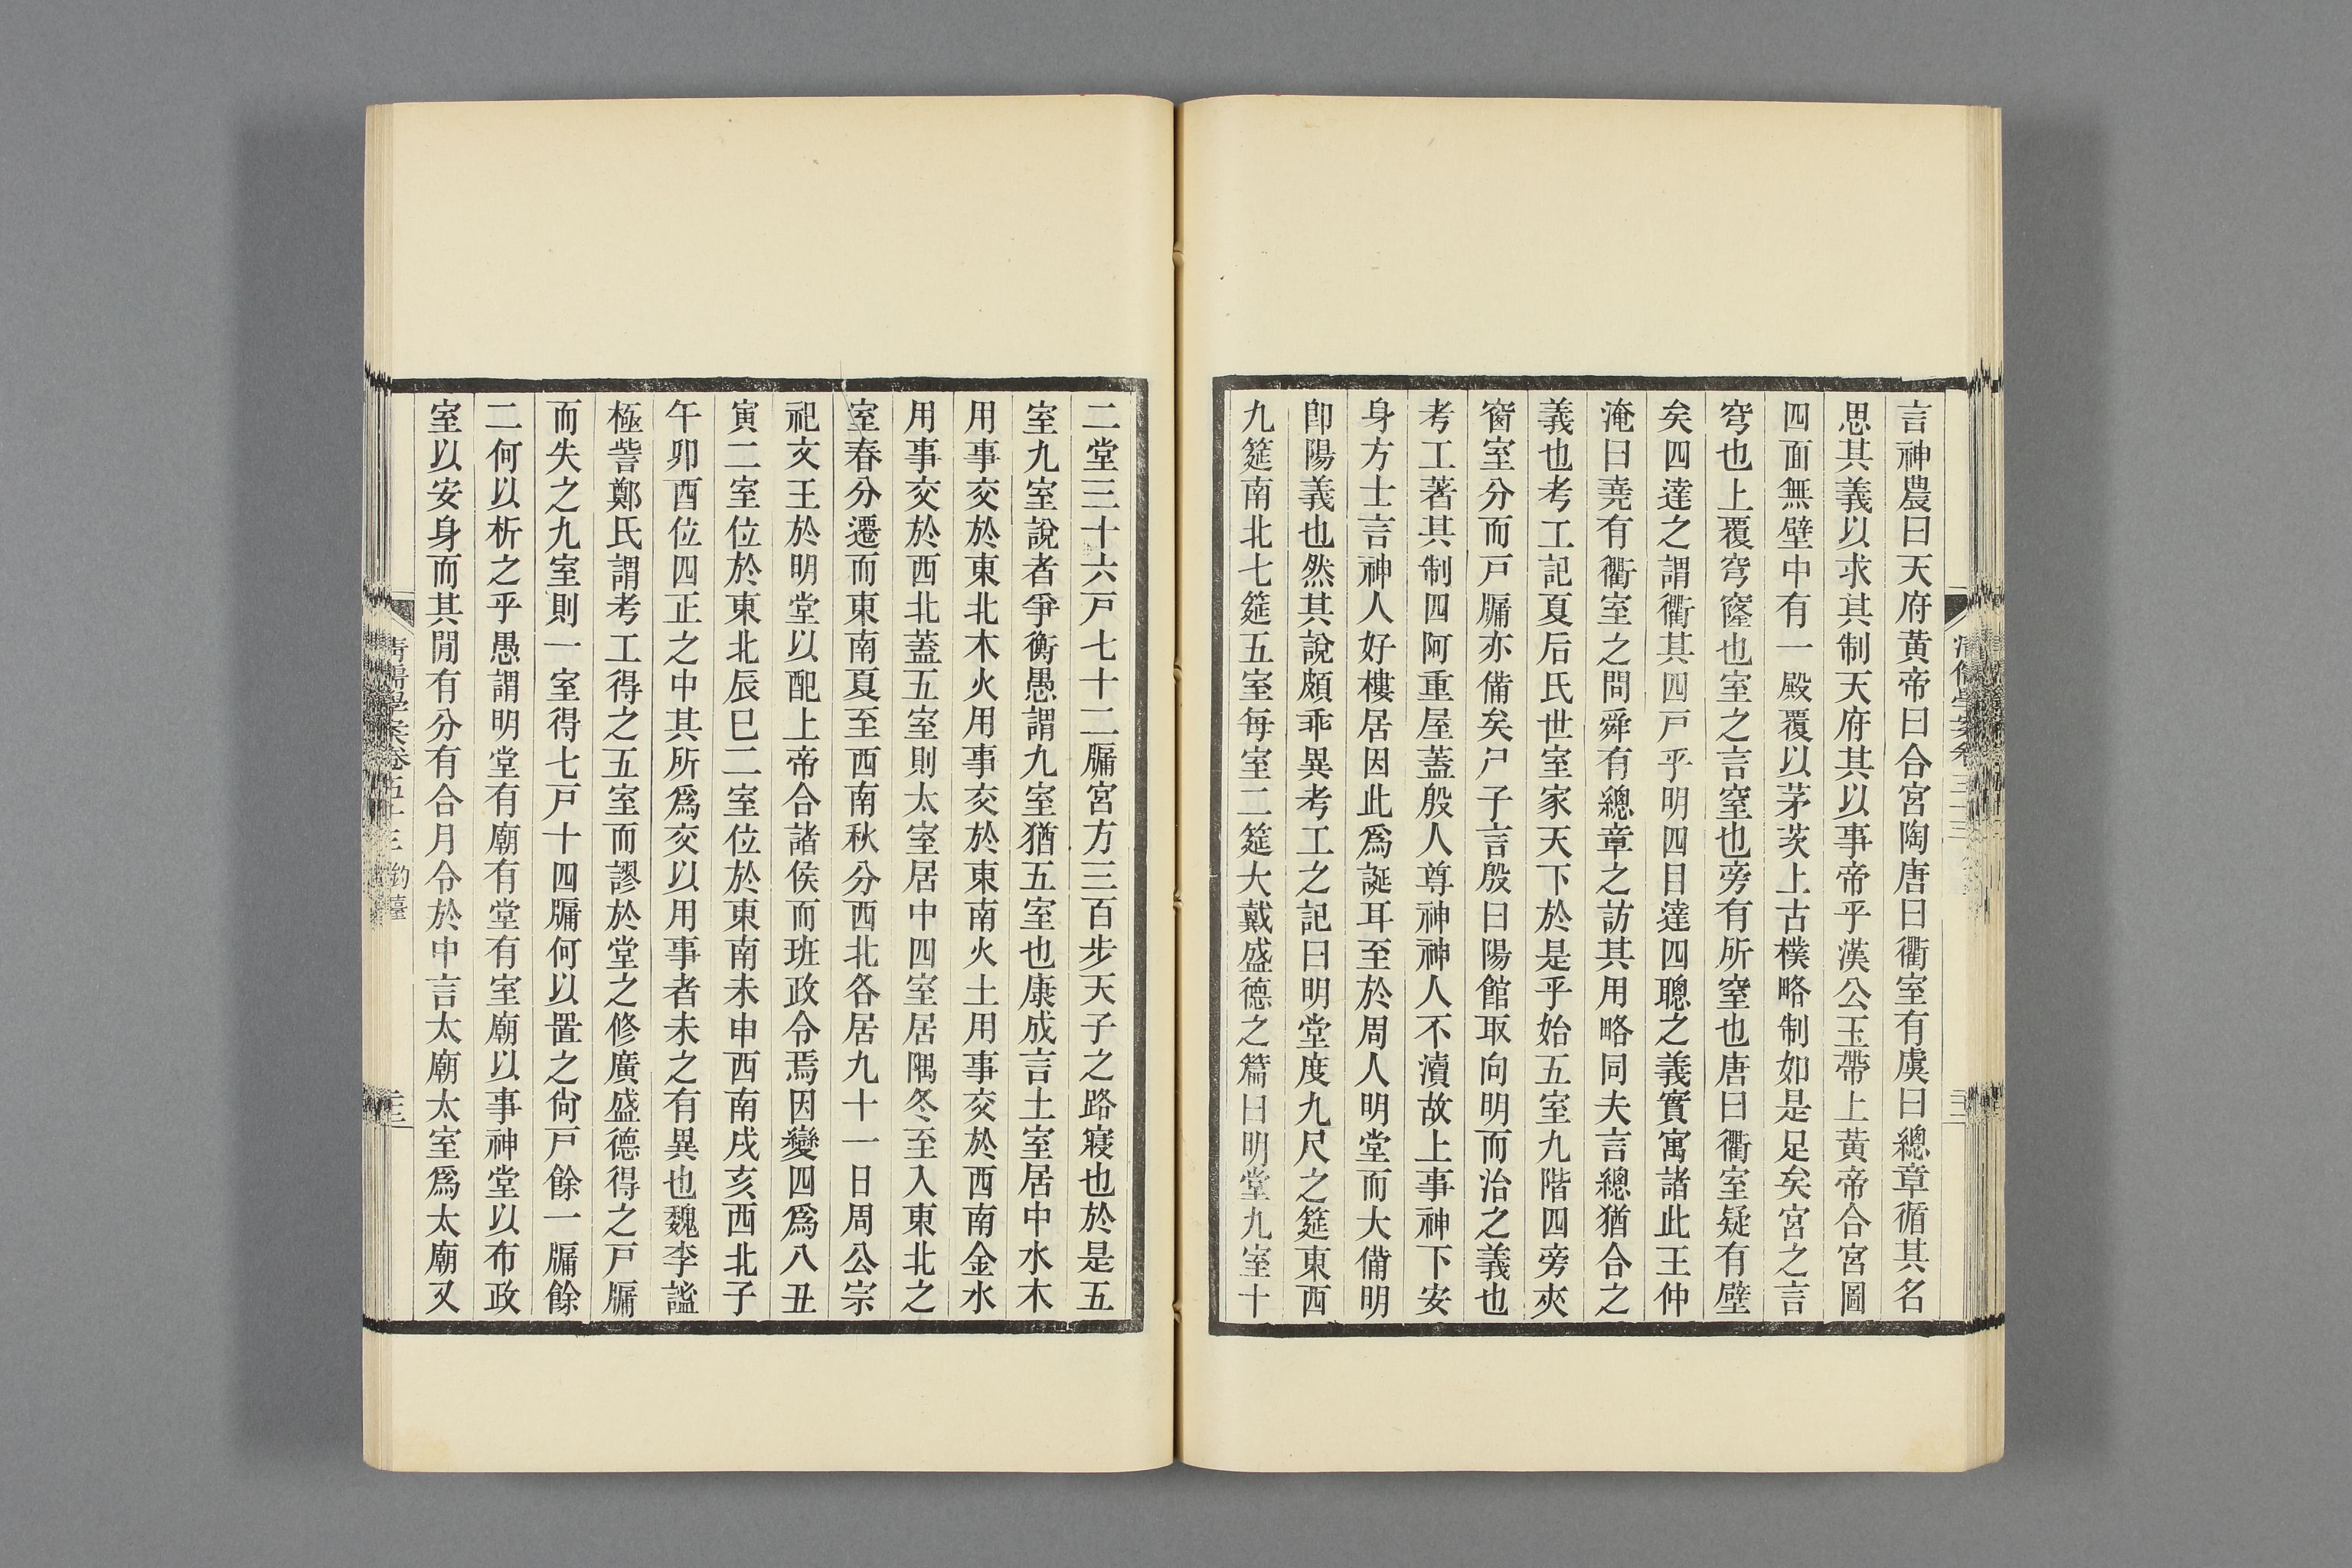 言神農曰天府黃帝曰合宮陶唐曰衢室有虞曰總章循其名
思其義以求其制天府其以事帝乎漢公玉帶上黃帝合宮圖
四面無壁中有一殿覆以茅茨上古樸略制如是足矣宮之言
穹也上覆穹窿也室之言窒也旁有所窒也唐曰衢室疑有壁
矣四達之謂衢其四戸乎明四目達四聰之義實寓諸此王仲
淹曰堯有衢室之問舜有總章之訪其用略同夫言總猶合之
義也考工記夏后氏世室家天下於是乎始五室九階四旁夾
窗室分而戸牖亦備矣尸子言殷曰陽館取向明而治之義也
考工著其制四阿重屋蓋殷人尊神神人不瀆故上事神下安
身方士言神人好樓居因此爲誕耳至於周人明堂而大備明
卽陽義也然其說頗乖異考工之記曰明堂度九尺之筵東西
九筵南北七筵五室每室二筵大戴盛德之篇曰明堂九室十
二堂三十六戸七十二牖宮方三百步天子之路寢也於是五
室九室說者爭衡愚謂九室猶五室也康成言土室居中水木
用事交於東北木火用事交於東南火土用事交於西南金水
用事交於西北蓋五室則太室居中四室居隅冬至入東北之
室春分遷而東南夏至西南秋分西北各居九十一日周公宗
祀文王於明堂以配上帝合諸侯而班政令焉因變四爲八丑
寅二室位於東北辰巳二室位於東南未申西南戌亥西北子
午卯酉位四正之中其所爲交以用事者未之有異也魏李謐
極訾鄭氏謂考工得之五室而謬於堂之修廣盛德得之戸牖
而失之九室則一室得七戸十四牖何以置之尙戸餘一牖餘
二何以析之乎愚謂明堂有廟有堂有室廟以事神堂以布政
室以安身而其閒有分有合月令於中言太廟太室爲太廟又